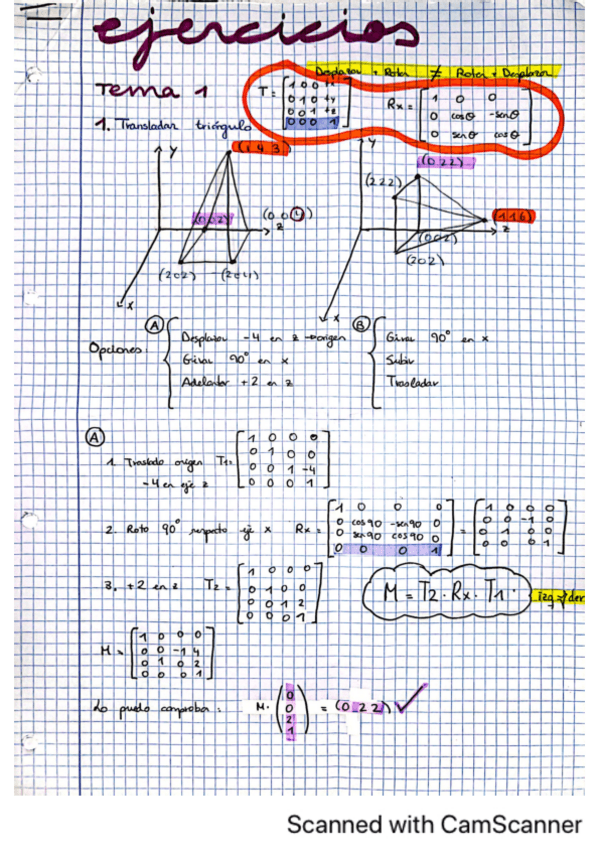 ejercicios
Desplazar + Rotar ≠ Rotar + Desplazar
Tema 1
T = [1 0 0 +x
0 1 0 +y
0 0 1 +z
0 0 0 1]
Rx = [1 0 0
0 cosθ -senθ
0 senθ cosθ]
1. Transladar triángulo
y
(1 4 3)
(0 0 2)
(0 0 4)
z
(2 0 2)
(2 0 4)
x
y
(0 2 2)
(2 2 2)
(1 1 6)
z
(0 0 2)
(2 0 2)
x
Opciones:
A
Desplazar -4 en z → origen
Girar 90° en x
Adelantar +2 en z
B
Girar 90° en x
Subir
Trasladar
A
1. Traslado origen T1=
-4 en eje z
[1 0 0 0
0 1 0 0
0 0 1 -4
0 0 0 1]
2. Roto 90° respecto eje x Rx =
[1 0 0 0
0 cos90 -sen90 0
0 sen90 cos90 0
0 0 0 1]
= [1 0 0 0
0 0 -1 0
0 1 0 0
0 0 0 1]
3. +2 en z T2 =
[1 0 0 0
0 1 0 0
0 0 1 2
0 0 0 1]
M = T2 · Rx · T1 ·
izq ≠ der
M = [1 0 0 0
0 0 -1 4
0 1 0 2
0 0 0 1]
Lo puedo comprobar: M · (0
0
2
1) = (0 2 2) ✓
Scanned with CamScanner